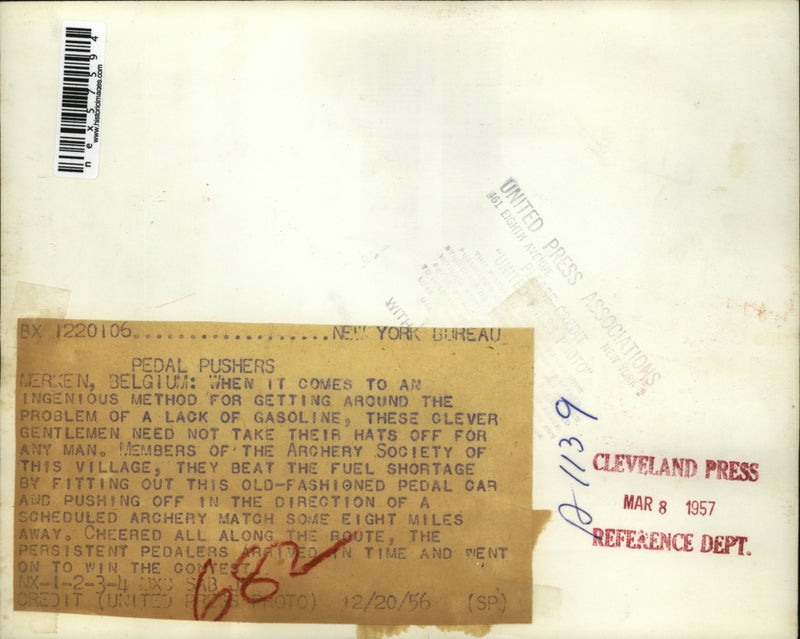 nex57594
www.historicimages.com
UNITED PRESS ASSOCIATIONS
461 EIGHTH AVENUE NEW YORK 1
PLEASE CREDIT
"UNITED
BX 1220106....................NEW YORK BUREAU
PEDAL PUSHERS
MERKEN, BELGIUM: WHEN IT COMES TO AN
INGENIOUS METHOD FOR GETTING AROUND THE
PROBLEM OF A LACK OF GASOLINE, THESE CLEVER
GENTLEMEN NEED NOT TAKE THEIR HATS OFF FOR
ANY MAN. MEMBERS OF THE ARCHERY SOCIETY OF
THIS VILLAGE, THEY BEAT THE FUEL SHORTAGE
BY FITTING OUT THIS OLD-FASHIONED PEDAL CAR
AND PUSHING OFF IN THE DIRECTION OF A
SCHEDULED ARCHERY MATCH SOME EIGHT MILES
AWAY. CHEERED ALL ALONG THE ROUTE, THE
PERSISTENT PEDALERS ARRIVED IN TIME AND WENT
ON TO WIN THE CONTEST.
NX-1-2-3-4
CREDIT (UNITED PRESS PHOTO) 12/20/56 (SP)
682
A-1139
CLEVELAND PRESS
MAR 8 1957
REFERENCE DEPT.